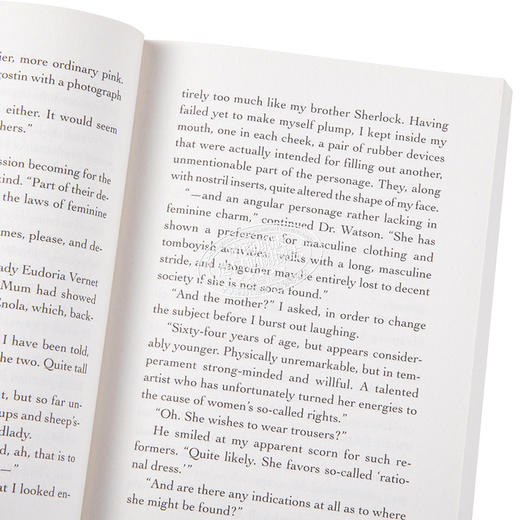 ier, more ordinary pink.
rostin with a photograph
either. It would seem
hers.”
ssion becoming for the
kind. “Part of their de-
the laws of feminine
mes, please, and de-
ady Eudoria Vernet
Mum had showed
Enola, which, back-
I have been told,
the two. Quite tall
t, but so far un-
ups and sheep’s-
dlady.
d, ah, that is to
—”
at I looked en-
tirely too much like my brother Sherlock. Having
failed yet to make myself plump, I kept inside my
mouth, one in each cheek, a pair of rubber devices
that were actually intended for filling out another,
unmentionable part of the personage. They, along
with nostril inserts, quite altered the shape of my face.
“—and an angular personage rather lacking in
feminine charm,” continued Dr. Watson. “She has
shown a preference for masculine clothing and
tomboyish activities, walks with a long, masculine
stride, and altogether may be entirely lost to decent
society if she is not soon found.”
“And the mother?” I asked, in order to change
the subject before I burst out laughing.
“Sixty-four years of age, but appears consider-
ably younger. Physically unremarkable, but in tem-
perament strong-minded and willful. A talented
artist who has unfortunately turned her energies to
the cause of women’s so-called rights.”
“Oh. She wishes to wear trousers?”
He smiled at my apparent scorn for such re-
formers. “Quite likely. She favors so-called ‘ratio-
nal dress.’”
“And are there any indications at all as to where
she might be found?”